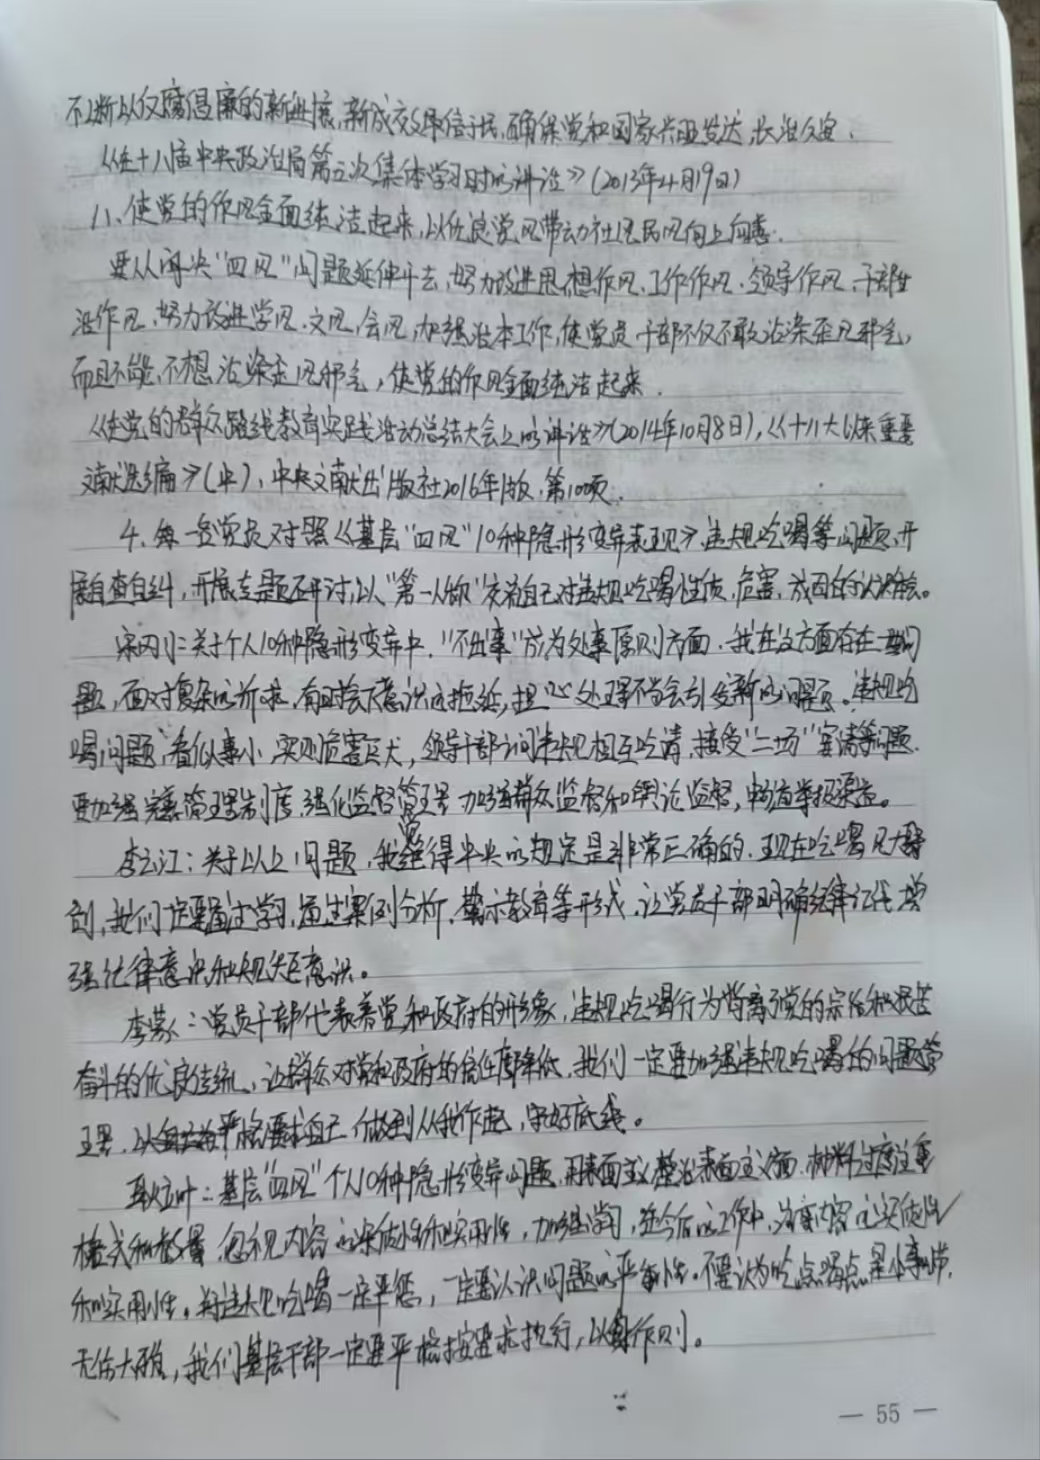 不断以反腐倡廉的新进展、新成效取信于民,确保党和国家兴旺发达、长治久安.
《在十八届中央政治局第五次集体学习时的讲话》(2013年4月19日)
八、使党的作风全面纯洁起来,以优良党风带动社风民风向上向善.
要从解决“四风”问题延伸下去,努力改进思想作风、工作作风、领导作风、干部生
活作风,努力改进学风、文风、会风,加强治本工作,使党员干部不仅不敢沾染歪风邪气,
而且不能、不想沾染歪风邪气,使党的作风全面纯洁起来.
《在党的群众路线教育实践活动总结大会上的讲话》(2014年10月8日),《十八大以来重要
文献选编》(中),中央文献出版社2016年版,第100页.
4、每一名党员对照《基层“四风”10种隐形变异表现》、违规吃喝等问题,开
展自查自纠,开展专题研讨,以“第一人称”交流自己对违规吃喝性质、危害、成因的认识体会。
宋刚:关于个人10种隐形变异中,“不出事”成为处事原则方面,我在这方面存在一些问
题,面对复杂的诉求,有时会下意识的拖延,担心处理不当会引发新的问题。违规吃
喝问题,看似事小,实则危害巨大,领导干部之间违规相互吃请、接受“二场”宴请等问题.
要加强完善管理制度,强化监督管理,加强群众监督和舆论监督,畅通举报渠道。
李云江:关于以上问题,我觉得中央的规定是非常正确的,现在吃喝风大都
刹,我们一定要通过学习,通过案例分析、警示教育等形式,让党员干部明确纪律红线,增
强纪律意识和规矩意识。
李  :党员干部代表着党和政府的形象,违规吃喝行为背离了党的宗旨和艰苦
奋斗的优良传统,让群众对党和政府的信任度降低,我们一定要加强违规吃喝的问题管
理,以 严格要求自己,做到从我作起,守好底线。
叶:基层“四风”个人10种隐形变异问题,用表面主义整治表面主义方面,材料过度注重
格式和数量,忽视内容的深刻性和实用性,加强学习,在今后的工作中,注重内容的实质性
和实用性。对违规吃喝一定严惩,一定要认识问题的严重性。不要认为吃点喝点是小事小节,
无伤大雅,我们基层干部一定要严格按要求执行,以身作则。
— 55 —